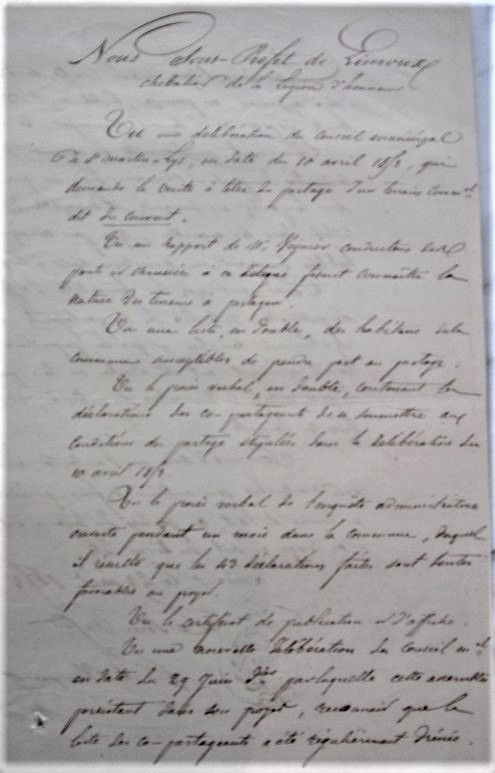 Nous Sous-Préfet de Limoux
chevalier de la Légion d'honneur
Vu une délibération du conseil municipal
de St Martin-Lys, en date du 10 avril 1853, qui
demande la vente à titre de partage d'un terrain comm.al
dit du couvent.
Vu un rapport de Mr conducteur des
ponts et chaussées à ce délégué faisant connaître la
nature des terrains à partager.
Vu une liste, en double, des habitans de la
commune susceptibles de prendre part au partage.
Vu le procès verbal, en double, contenant les
déclarations des co-partageant de se soumettre aux
conditions du partage stipulées dans la délibération du
10 avril 1853.
Vu le procès verbal de l'enquête administrative
ouverte pendant un mois dans la commune, duquel
il résulte que les 43 déclarations faites sont toutes
favorables au projet.
Vu le certificat de publication et d'affiche.
Vu une nouvelle délibération du conseil m.al
en date du 29 Juin dier par laquelle cette assemblée
persistant dans son projet, reconnait que la
liste des co-partageants a été régulièrement dressée.